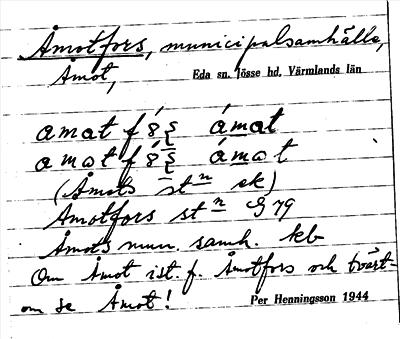 Åmotfors, municipalsamhälle,
Åmot, Eda sn. Jösse hd. Värmlands län
ámat
(Åmots stn ek)
Åmotfors stn G 79
Åmots mun. samh. kb
Om Åmot ist. f. Åmotfors och tvärt-
om se Åmot!
Per Henningsson 1944